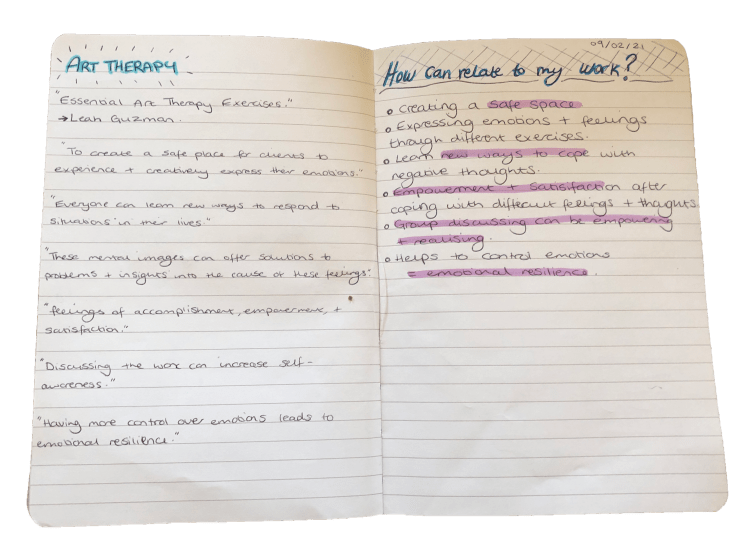 ART THERAPY
"Essential Art Therapy Exercises."
→ Leah Guzman.
"To create a safe place for clients to
experience + creatively express their emotions."
"Everyone can learn new ways to respond to
situations in their lives."
"These mental images can offer solutions to
problems + insights into the cause of these feelings."
"feelings of accomplishment, empowerment, +
satisfaction."
"Discussing the work can increase self-
awareness."
"Having more control over emotions leads to
emotional resilience."
09/02/21
How Can relate to my work?
• Creating a safe space
• Expressing emotions + feelings
through different exercises.
• Learn new ways to cope with
negative thoughts.
• Empowerment + Satisfaction after
coping with different feelings + thoughts.
• Group discussing can be empowering
+ realising.
• Helps to control emotions
= emotional resilience.